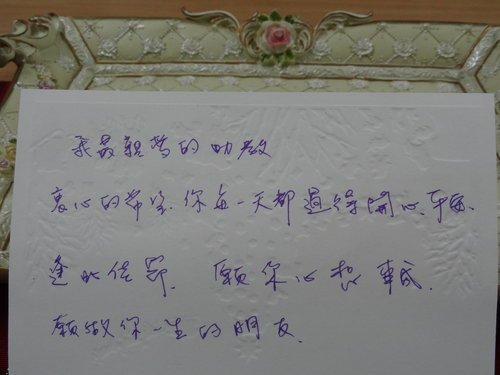 我最親愛的助教
衷心的希望.你每一天都過得開心、平安.
逢此佳節. 願你心想事成.
願做你一生的朋友.